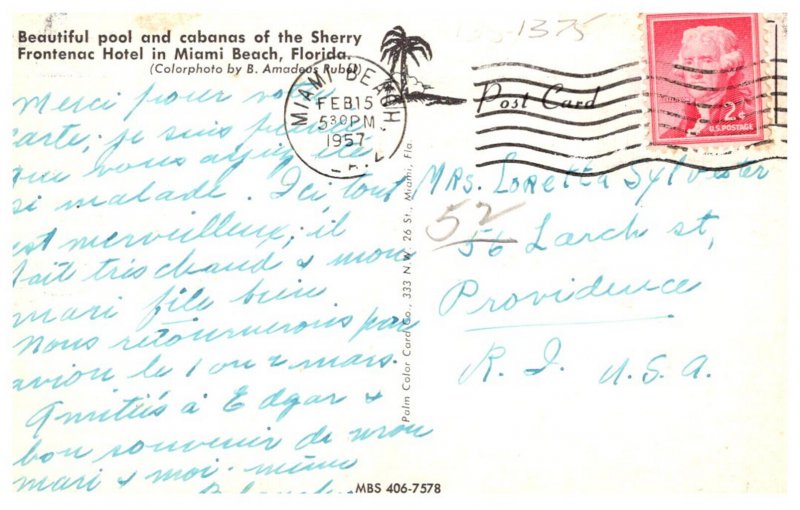 Beautiful pool and cabanas of the Sherry
Frontenac Hotel in Miami Beach, Florida.
(Colorphoto by B. Amadeus Rubel)
1375
MIAMI BEACH
FEB 15
530 PM
1957
FLA
Post Card
2¢
U.S. POSTAGE
Merci pour votre
carte; je suis
que vous ayez été
si malade. Ici tout
est merveilleux; il
fait très chaud & mon
mari file bien
Nous retournerons par
avion le 1 ou 2 mars.
Amitiés à Edgar &
bon souvenir de mon
mari & moi-même
Mrs. Loretta Sylvester
52
56 Larch St,
Providence
R. I. U.S.A.
Palm Color Card Co., 333 N.W. 26 St., Miami, Fla.
MBS 406-7578